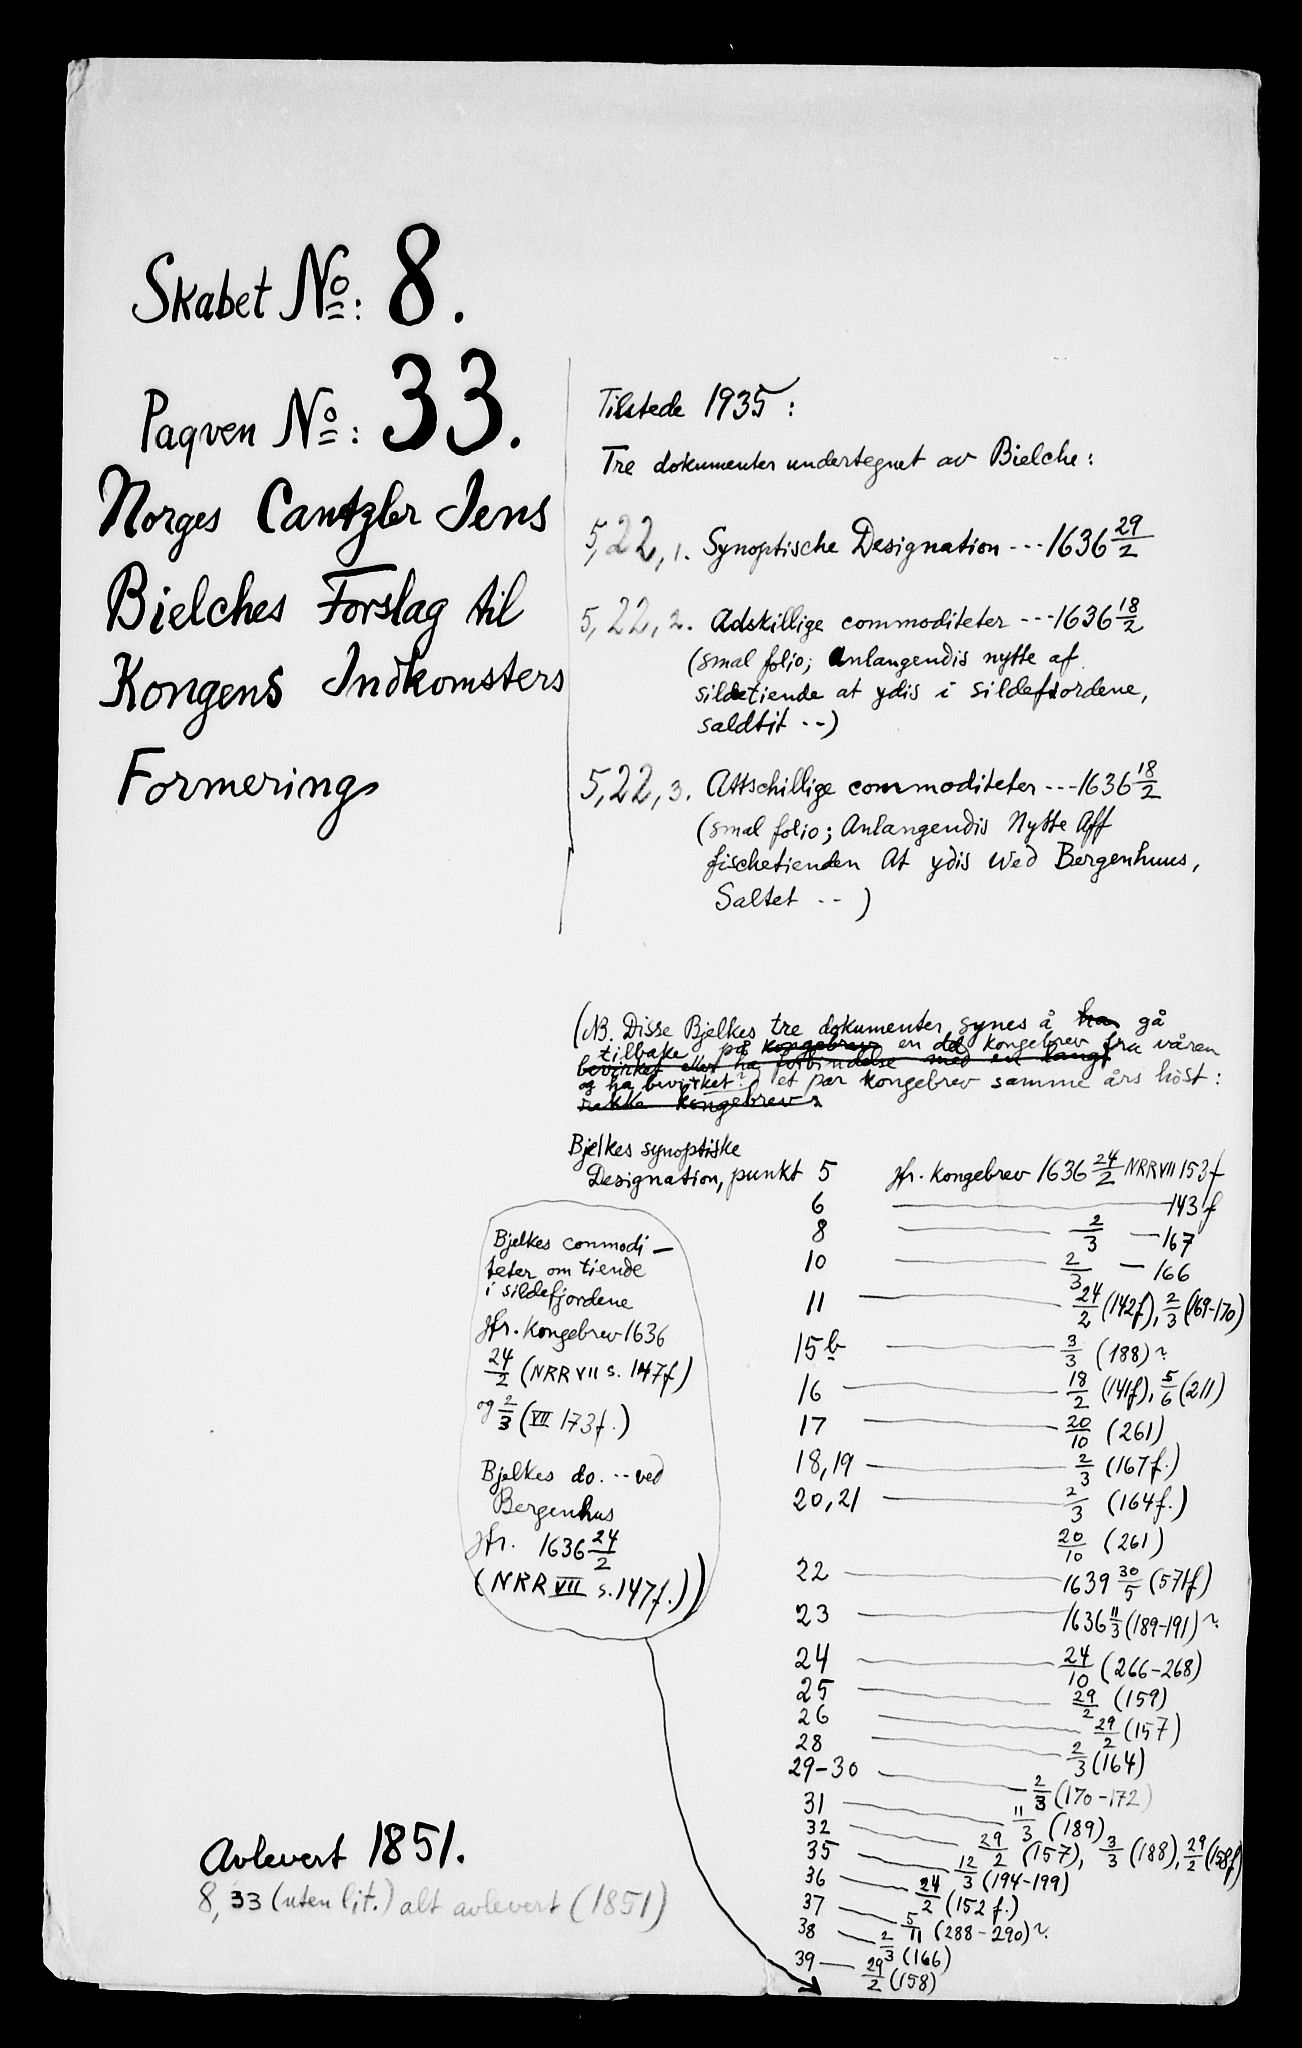 Skabet No: 8.
Paqven No: 33.
Norges Cantzler Jens
Bielches Forslag til
Kongens Indkomsters
Formering
Tilstede 1935:
Tre dokumenter undertegnet av Bielche:
5,22,1. Synoptische Designation --- 1636 29/2
5,22,2. Adskillige commoditeter --- 1636 18/2
(smal folio; Anlangendis nytte af
sildetiende at ydis i sildefiordene,
saldtit --)
5,22,3. Attschillige commoditeter --- 1636 18/2
(smal folio; Anlangendis Nytte Aff
fischetienden At ydis wed Bergenhuus,
Saltet -- )
(NB. Disse Bjelkes tre dokumenter synes å ha gå
tilbake på kongebrev en del kongebrev fra våren
bevirket eller ha forbindelse med en lang
og ha bevirket? et par kongebrev samme års höst:
rekke kongebrev
Bjelkes synoptiske
Designation, punkt 5 jfr. kongebrev 1636 24/2 NRR VII 153f
6 — 143f
8 — 2/3 — 167
10 — 2/3 — 166
11 — 24/2 (142f), 2/3 (169-170)
15b — 3/3 (188)?
16 — 18/2 (141f), 5/6 (211)
17 — 20/10 (261)
18,19 — 2/3 (167f.)
20,21 — 2/3 (164f.)
20/10 (261)
22 — 1639 30/5 (571f)
23 — 1636 11/3 (189-191)?
24 — 24/10 (266-268)
25 — 29/2 (159)
26 — 29/2 (157)
28 — 2/3 (164)
29-30 — 2/3 (170-172)
31 — 11/3 (189)
32 — 29/2 (157), 3/3 (188), 29/2 (158f)
35 — 12/3 (194-199)
36 — 24/2 (152f.)
37 — 5/11 (288-290)?
38 — 2/3 (166)
39 — 29/2 (158)
Bjelkes commodi-
teter om tiende
i sildefjordene
jfr. kongebrev 1636
24/2 (NRR VII s. 147f)
og 2/3 (VII 173f.)
Bjelkes do. -- ved
Bergenhus
jfr. 1636 24/2
(NRR VII s. 147f.))
Avlevert 1851.
8,33 (uten lit.) alt avlevert (1851)